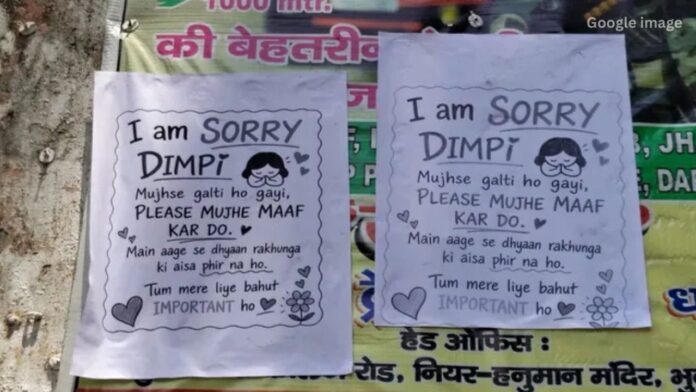 Google image
1000 mtr.
की बेहतरीन
I am SORRY
DIMPI
Mujhse galti ho gayi,
PLEASE MUJHE MAAF
KAR DO.
Main aage se dhyaan rakhunga
ki aisa phir na ho.
Tum mere liye bahut
IMPORTANT ho
I am SORRY
DIMPI
Mujhse galti ho gayi,
PLEASE MUJHE MAAF
KAR DO.
Main aage se dhyaan rakhunga
ki aisa phir na ho.
Tum mere liye bahut
IMPORTANT ho
हेड ऑफिस :
रोड, नियर-हनुमान मंदिर,